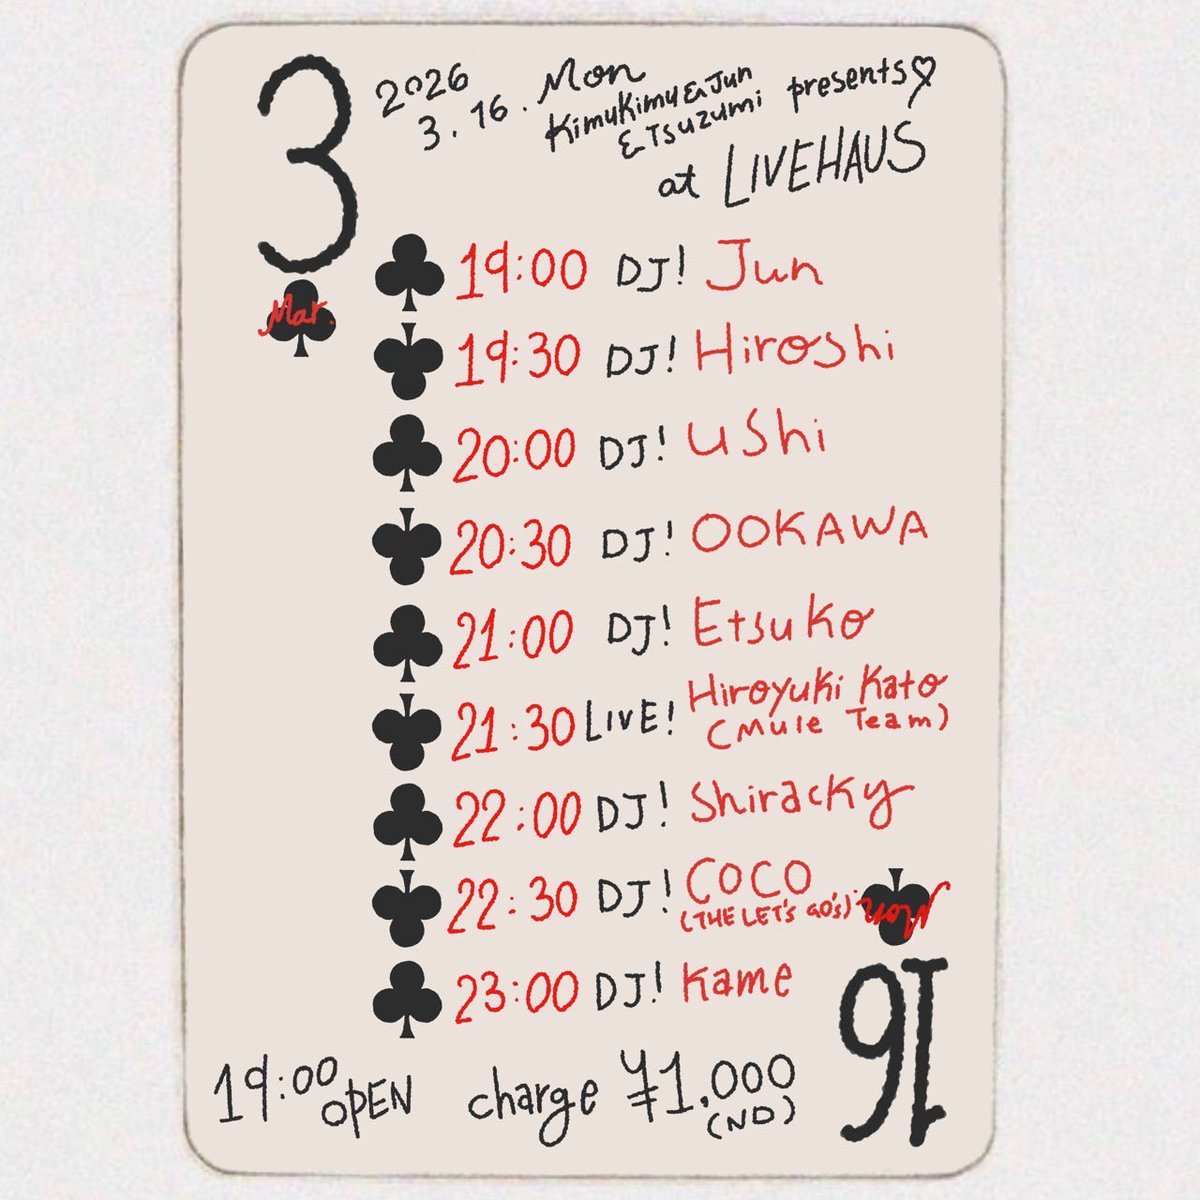 3
Mar.
2026
3.16.Mon
KimuKimu&Jun
&Tsuzumi presents♡
at LIVEHAUS
19:00 DJ! Jun
19:30 DJ! Hiroshi
20:00 DJ! UShi
20:30 DJ! OOKAWA
21:00 DJ! Etsuko
21:30 LIVE! Hiroyuki Kato
(Mule Team)
22:00 DJ! Shiracky
22:30 DJ! COCO
(THE LET'S GO'S)
23:00 DJ! Kame
Mon
16
19:00 OPEN charge ¥1,000
(ND)